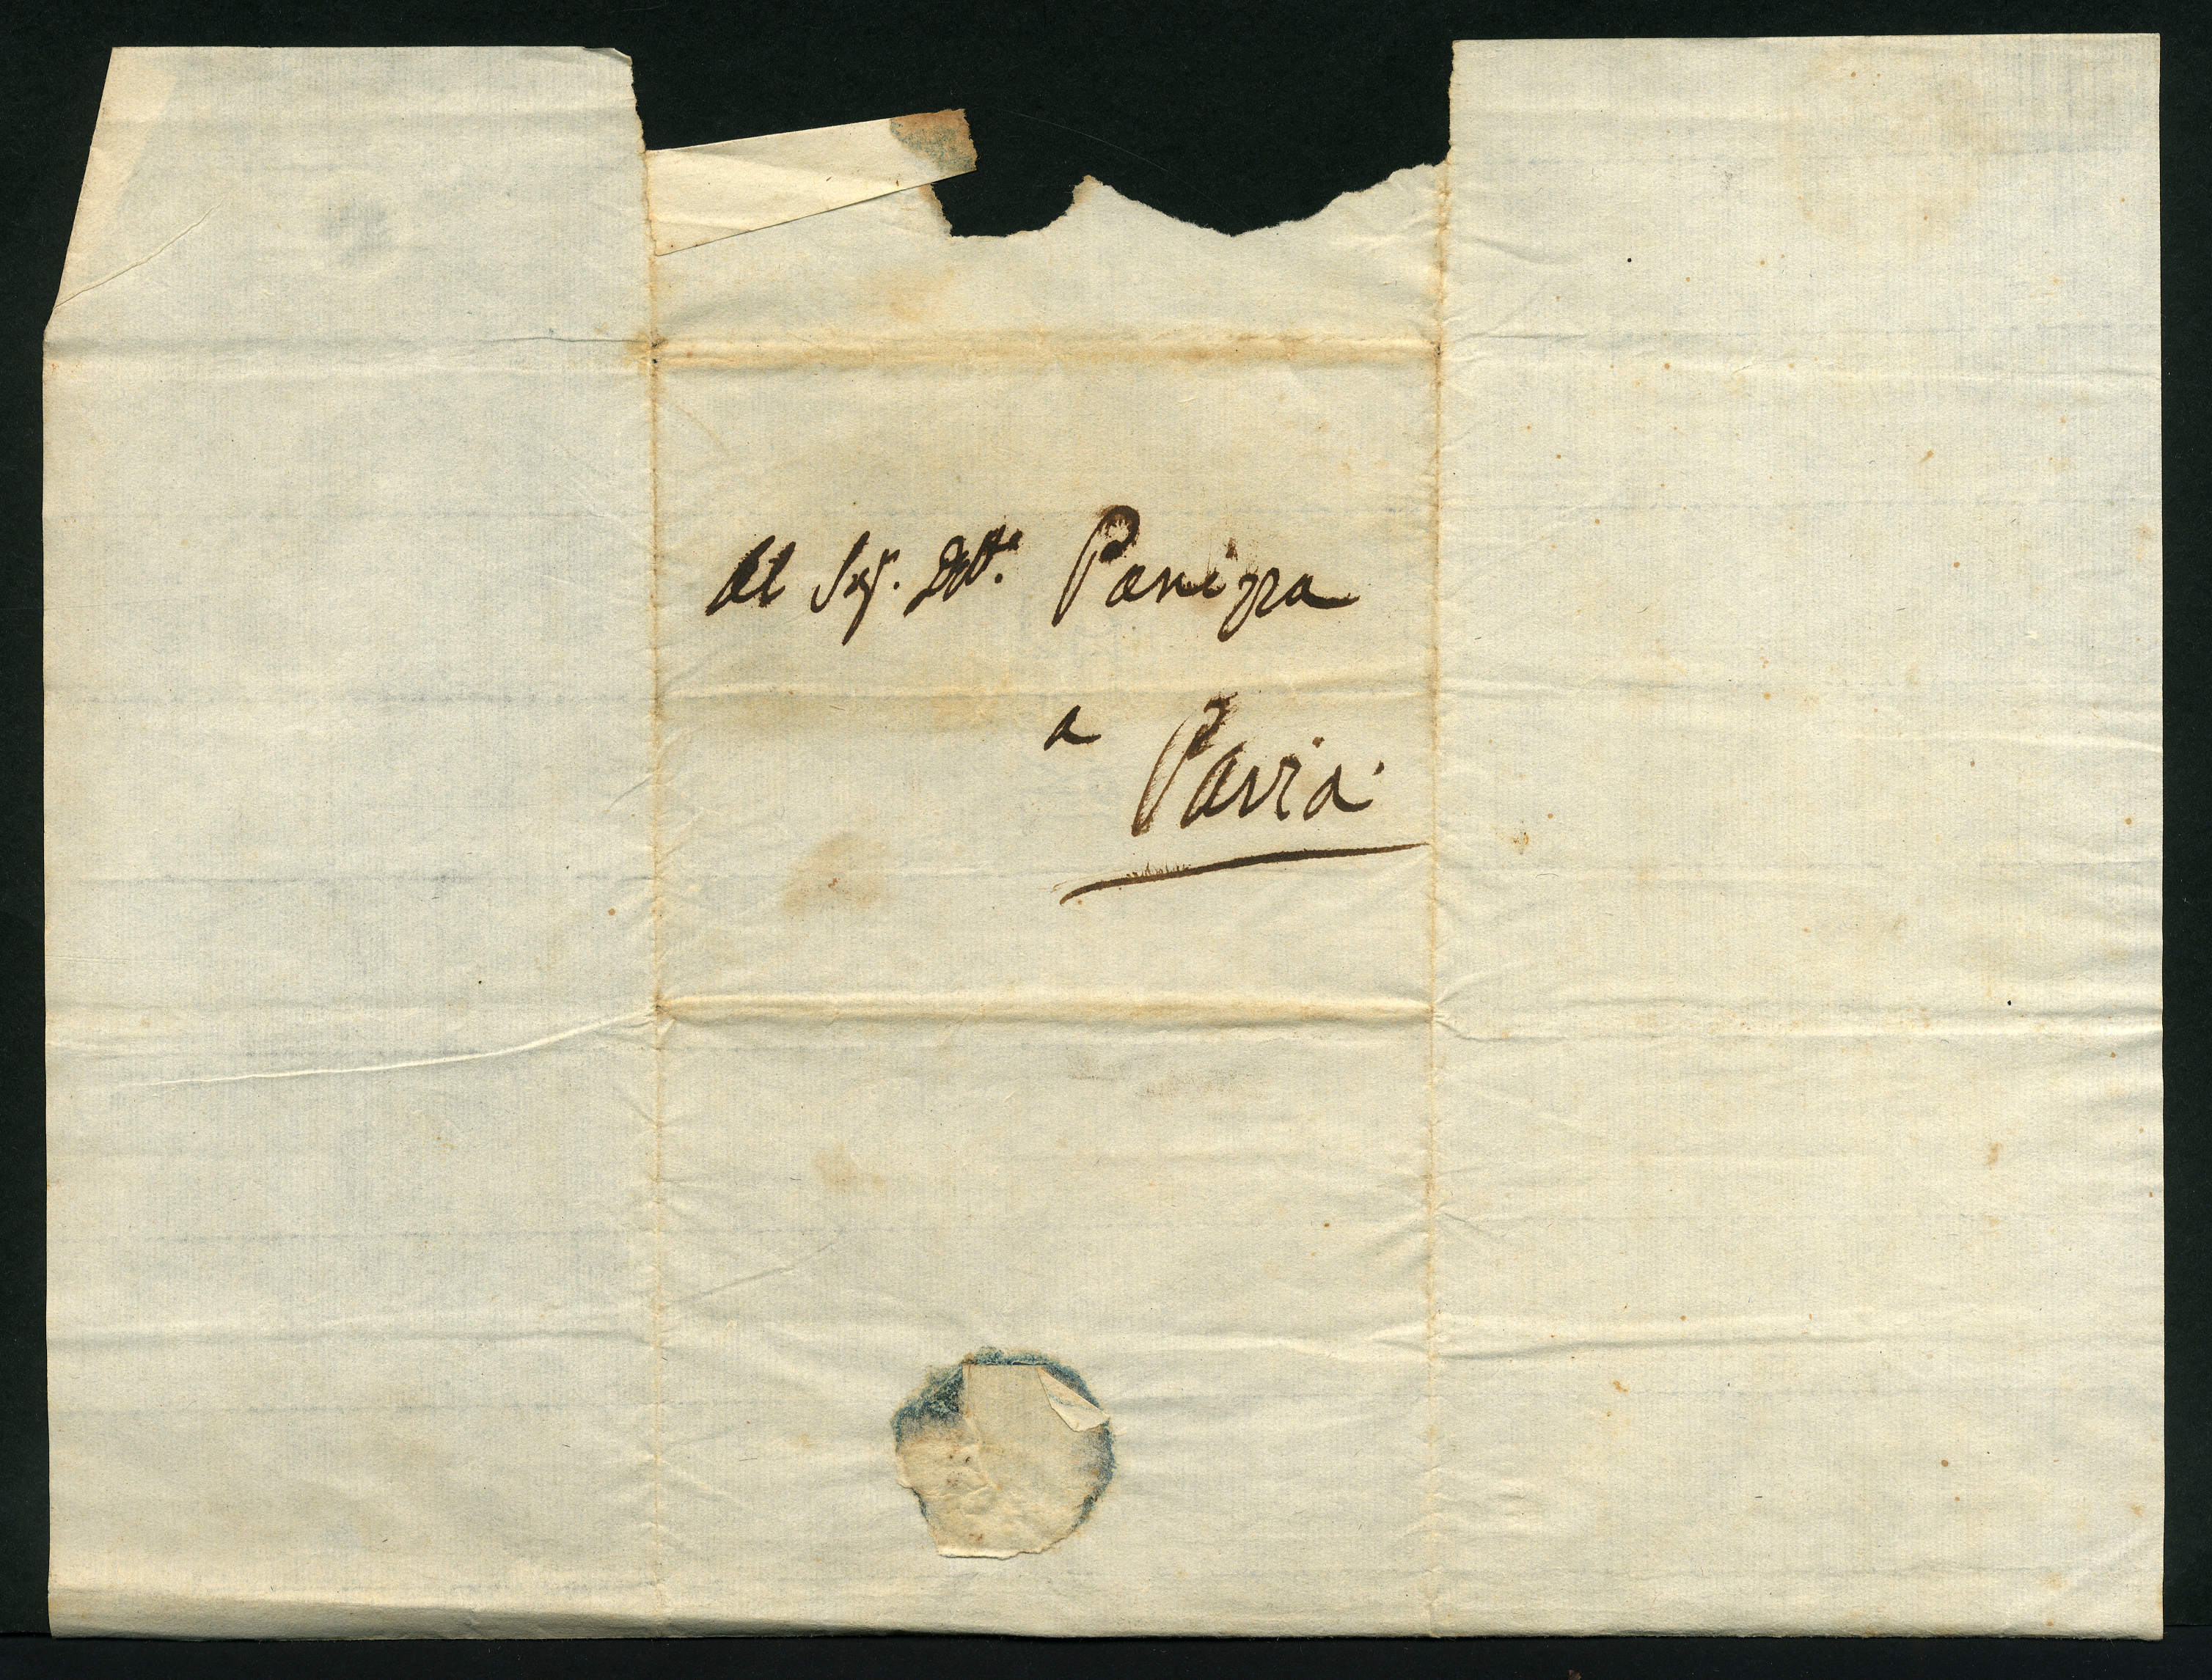 Al Sig.r Dott.e Panizza
a
Pavia.